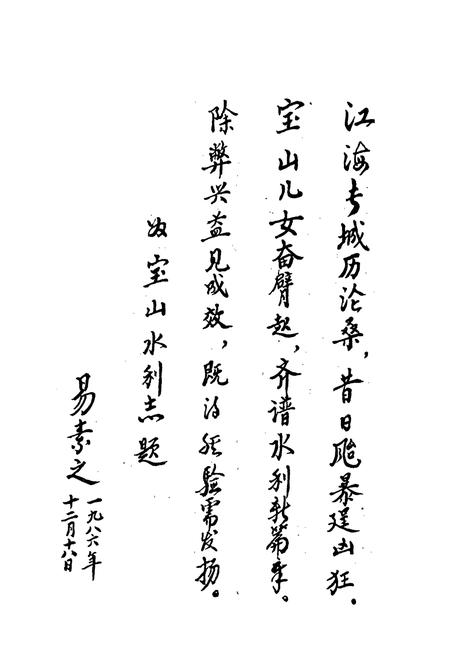 江海古城历沧桑，昔日飑暴逞凶狂。
宝山儿女奋臂起，齐谱水利新篇章。
除弊兴益见成效，既得经验需发扬。
为宝山水利志题
易素之
一九八六年
十二月十八日